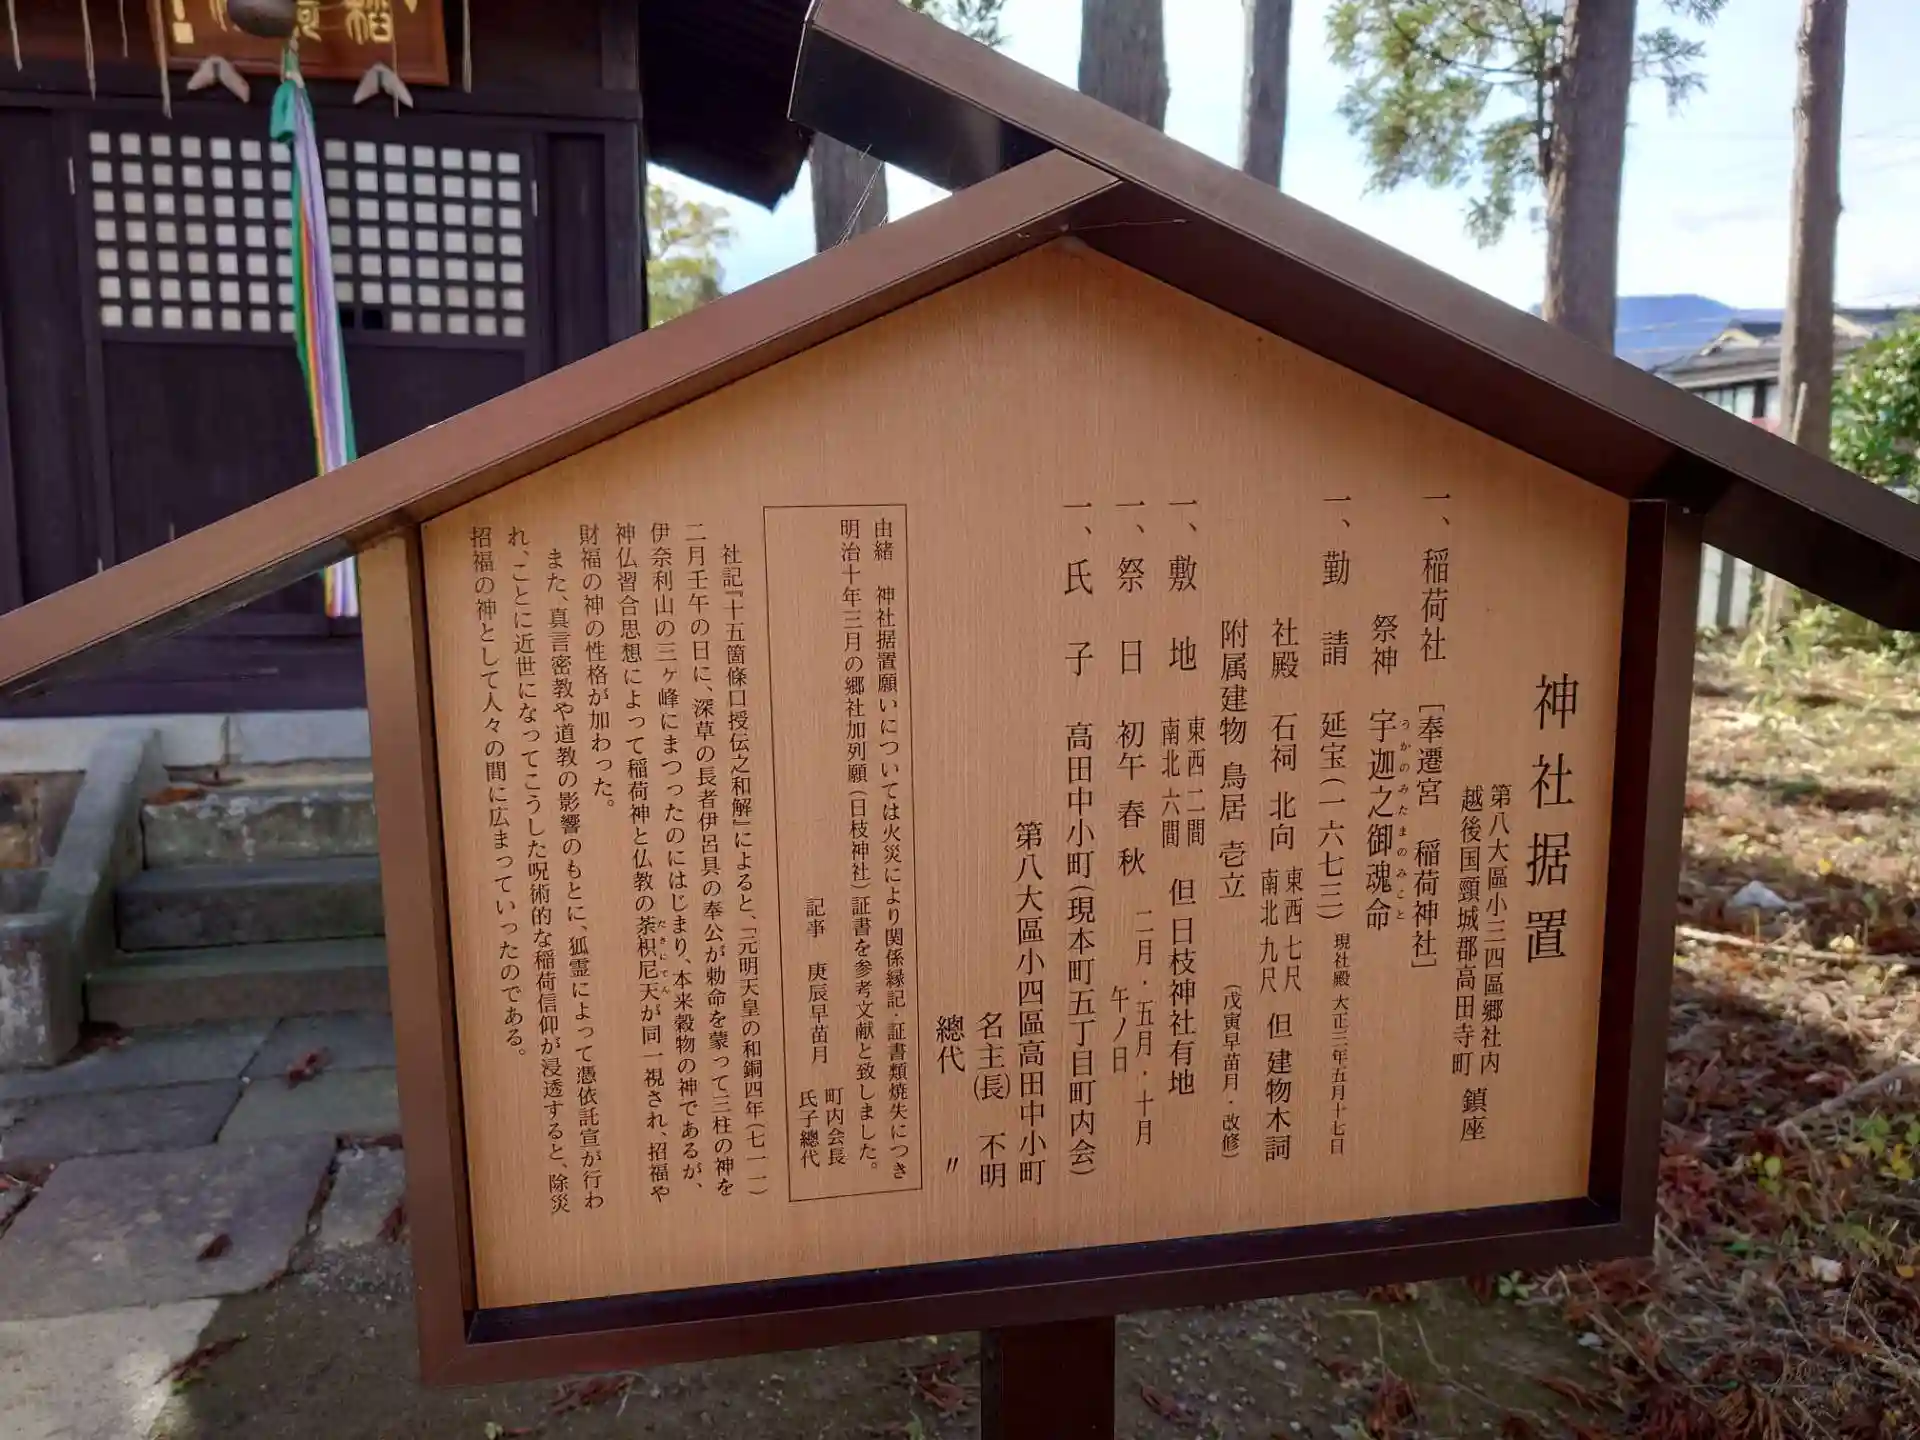 稲荷
神社据置
第八大區小三四區郷社内
越後国頸城郡高田寺町 鎮座
一、稲荷社 [奉遷宮 稲荷神社]
祭神 宇迦之御魂命
うかのみたまのみこと
一、勤請 延宝(一六七三) 現社殿 大正三年五月十七日
社殿 石祠 北向 東西七尺 南北九尺 但 建物木詞
附属建物 鳥居 壱立 (戊寅早苗月・改修)
一、敷地 東西二間 南北六間 但 日枝神社有地
一、祭日 初午 春 秋 二月・五月・十月 午ノ日
一、氏子 高田中小町(現本町五丁目町内会)
第八大區小四區高田中小町
名主(長) 不明
總代 〃
由緒 神社据置願いについては火災により関係縁記・証書類焼失につき
明治十年三月の郷社加列願(日枝神社)証書を参考文献と致しました。
記事 庚辰早苗月 町内会長
氏子總代
社記『十五箇條口授伝之和解』によると、「元明天皇の和銅四年(七一一)
二月壬午の日に、深草の長者伊呂具の奉公が勅命を蒙って三柱の神を
伊奈利山の三ヶ峰にまつったのにはじまり、本来穀物の神であるが、
神仏習合思想によって稲荷神と仏教の荼枳尼天が同一視され、招福や
だきにてん
財福の神の性格が加わった。
また、真言密教や道教の影響のもとに、狐霊によって憑依託宣が行わ
れ、ことに近世になってこうした呪術的な稲荷信仰が浸透すると、除災
招福の神として人々の間に広まっていったのである。